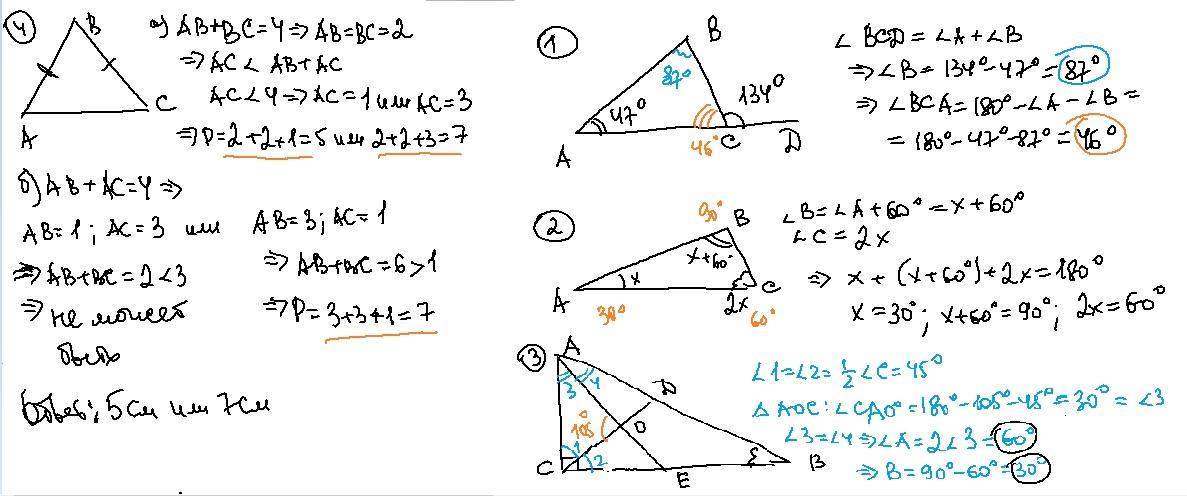 4
B
A
C
а) AB+BC=4 ⇒ AB=BC=2
⇒ AC < AB+AC
AC<4 ⇒ AC=1 или AC=3
⇒ P=2+2+1=5 или 2+2+3=7
б) AB+AC=4 ⇒
AB=1; AC=3 или AB=3; AC=1
⇒ AB+BC=2<3
⇒ AB+BC=6>1
⇒ не может
быть
⇒ P=3+3+1=7
Ответ: 5см или 7см
1
B
87°
47°
134°
A
46°
C
D
∠BCD=∠A+∠B
⇒ ∠B=134°-47°=87°
⇒ ∠BCA=180°-∠A-∠B=
=180°-47°-87°=46°
2
90°
B
x+60°
x
A
C
30°
2x
60°
∠B=∠A+60°=x+60°
∠C=2x
⇒ x+(x+60°)+2x=180°
x=30°; x+60°=90°; 2x=60°
3
A
3
4
D
105°
O
1
2
C
E
B
∠1=∠2=1/2∠C=45°
△AOC: ∠CAO=180°-105°-45°=30°=∠3
∠3=∠4 ⇒ ∠A=2∠3=60°
⇒ B=90°-60°=30°